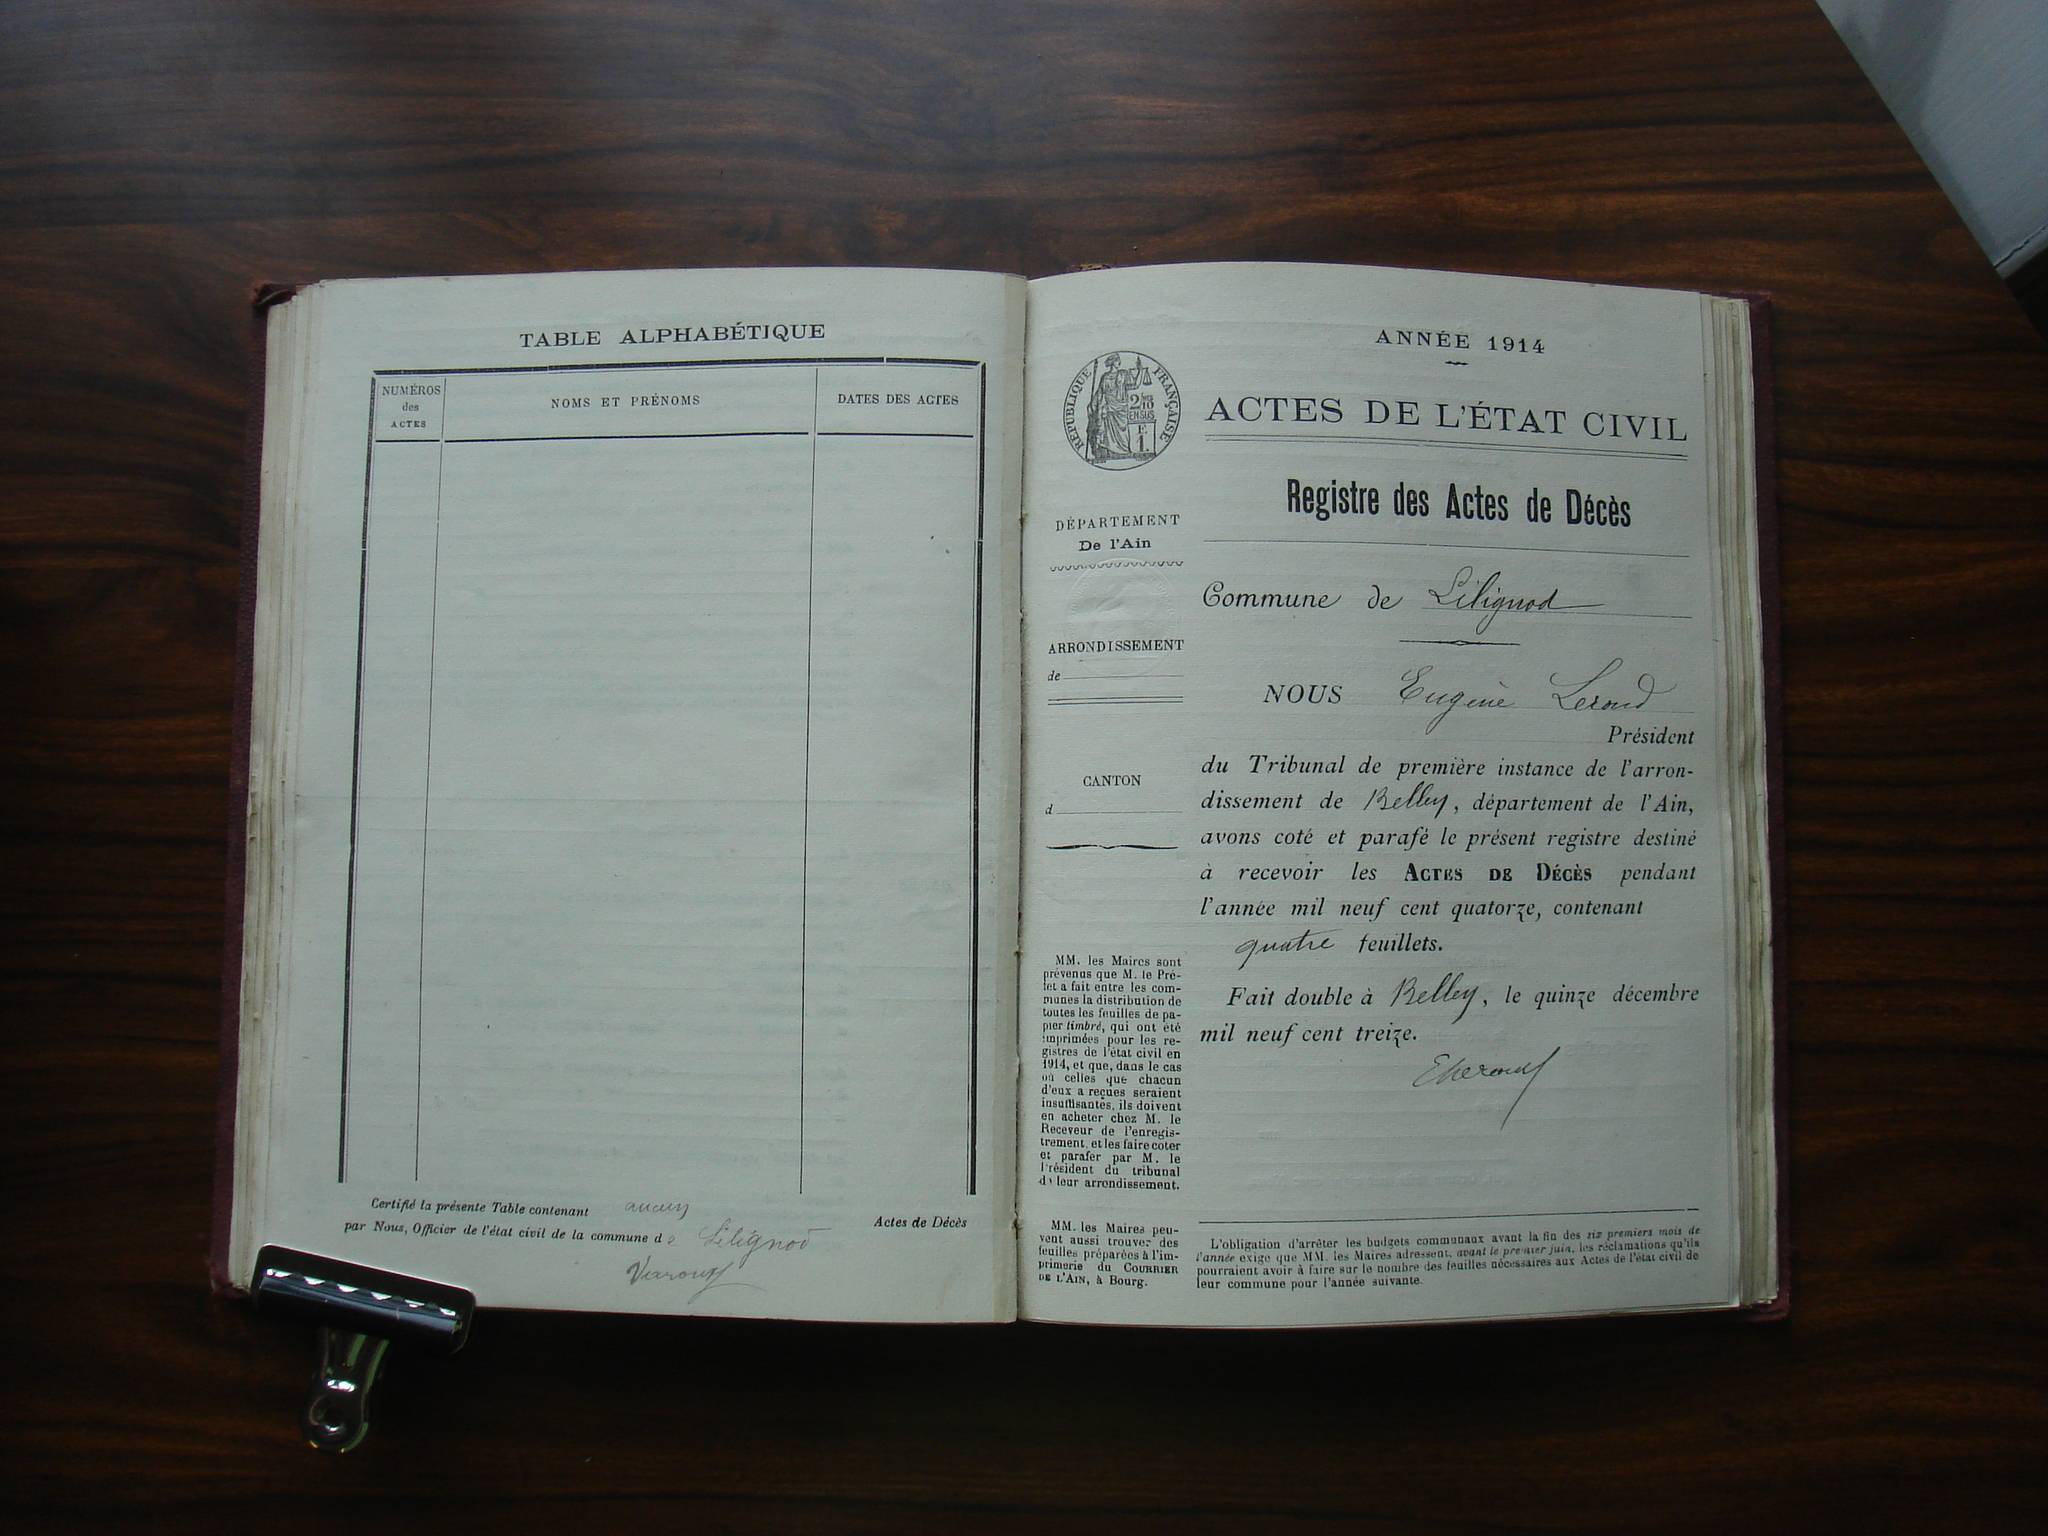 TABLE ALPHABÉTIQUE
NUMÉROS
des
ACTES
NOMS ET PRÉNOMS
DATES DES ACTES
Certifié la présente Table contenant aucun Actes de Décès
par Nous, Officier de l'état civil de la commune de Lilignod
RÉPUBLIQUE FRANÇAISE
2/10
EN SUS
F.
1.
DÉPARTEMENT
De l'Ain
ARRONDISSEMENT
de
CANTON
d
MM. les Maires sont
prévenus que M. le Pré-
fet a fait entre les com-
munes la distribution de
toutes les feuilles de pa-
pier timbré, qui ont été
imprimées pour les re-
gistres de l'état civil en
1914, et que, dans le cas
où celles que chacun
d'eux a reçues seraient
insuffisantes, ils doivent
en acheter chez M. le
Receveur de l'enregis-
trement, et les faire coter
et parafer par M. le
Président du tribunal
de leur arrondissement.
MM. les Maires peu-
vent aussi trouver des
feuilles préparées à l'im-
primerie du COURRIER
DE L'AIN, à Bourg.
ANNÉE 1914
ACTES DE L'ÉTAT CIVIL
Registre des Actes de Décès
Commune de Lilignod
NOUS Eugène Leroud
Président
du Tribunal de première instance de l'arron-
dissement de Belley, département de l'Ain,
avons coté et parafé le présent registre destiné
à recevoir les ACTES DE DÉCÈS pendant
l'année mil neuf cent quatorze, contenant
quatre feuillets.
Fait double à Belley, le quinze décembre
mil neuf cent treize.
L'obligation d'arrêter les budgets communaux avant la fin des six premiers mois de
l'année exige que MM. les Maires adressent, avant le premier juin, les réclamations qu'ils
pourraient avoir à faire sur le nombre des feuilles nécessaires aux Actes de l'état civil de
leur commune pour l'année suivante.